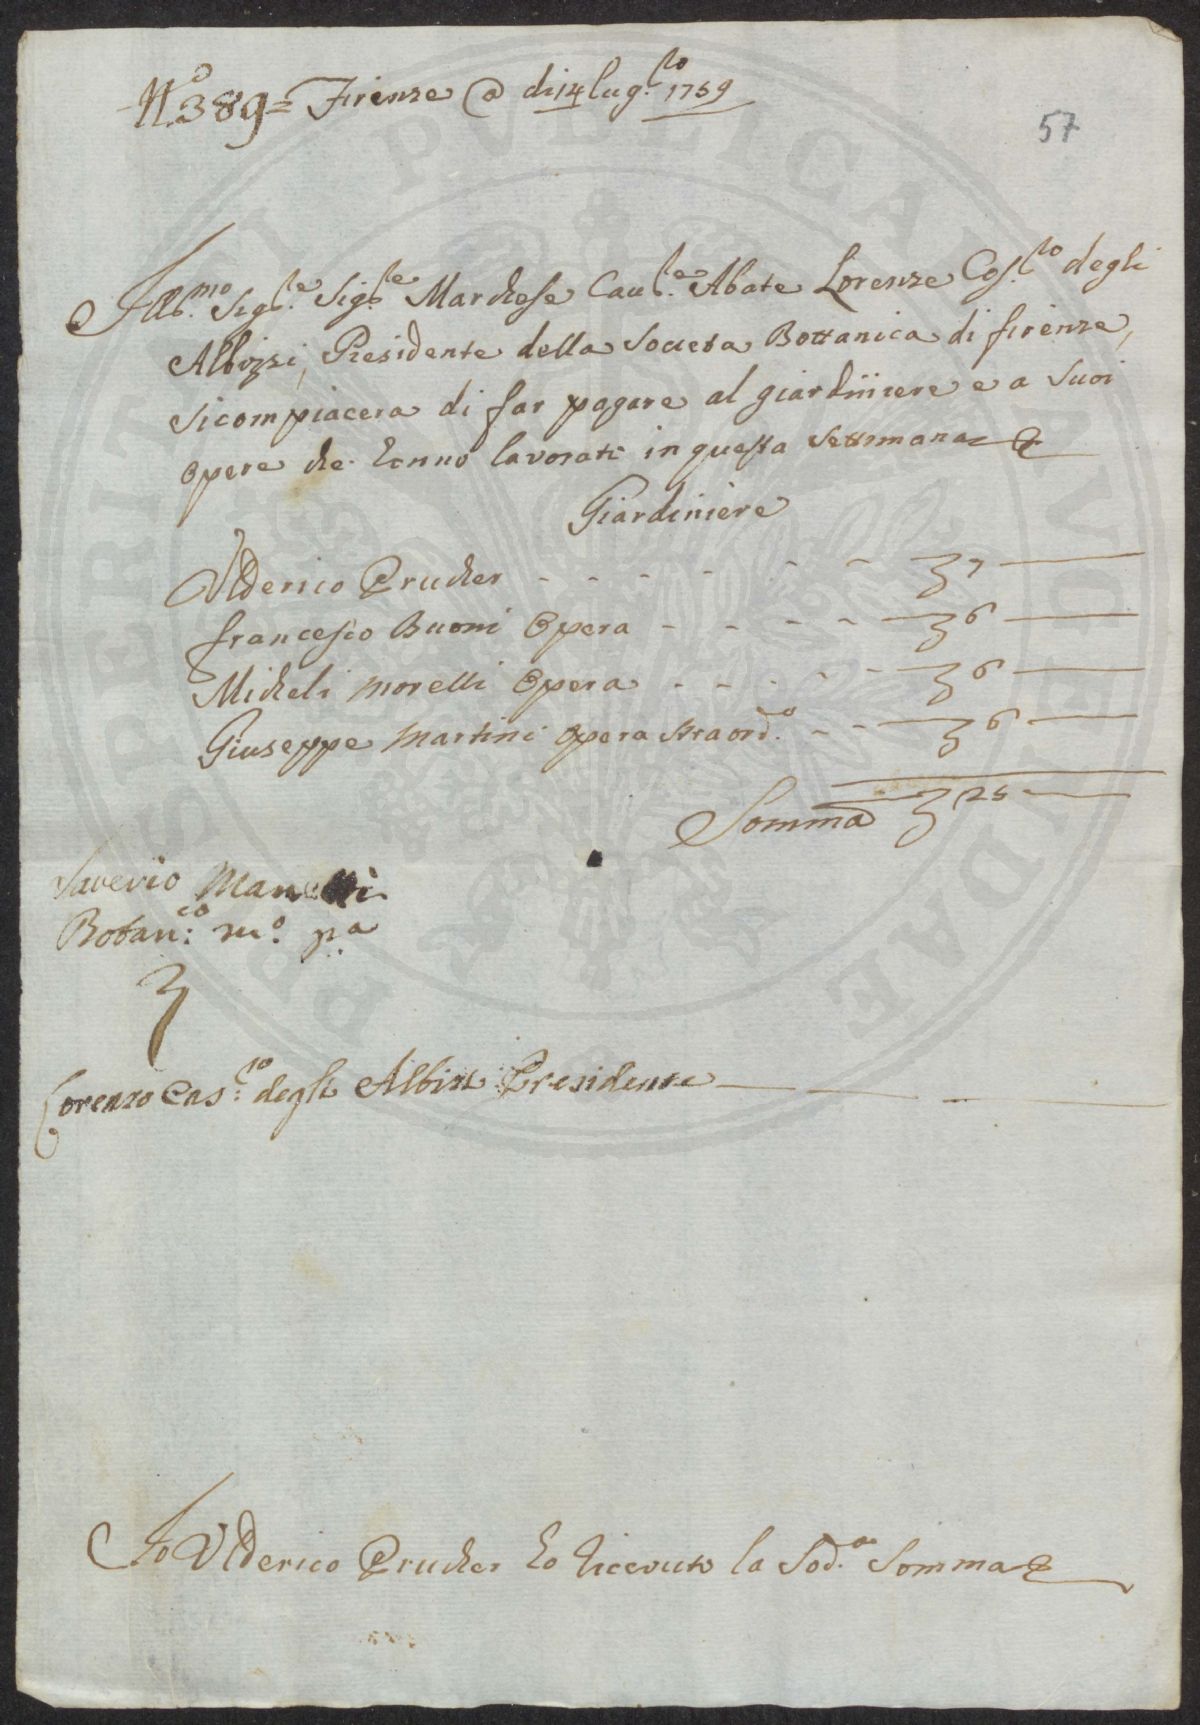 N.o 389= Firenze @ di 14 lug.lo 1759
57
Ill.mo Sig.re Sig.re Marchese Cau.re Abate Lorenzo Cos.to degli
Albizzi, Presidente della Societa Bottanica di firenze,
si compiacera di far pagare al giardiniere e a Suoi
opere che hanno lavorati in questa Settimana
Giardiniere
Vlderico Prucher - - - - - - 7
francesco Buoni Opera - - - - 6
Micheli Morelli Opera - - - - 6
Giuseppe Martini Opera straord.a - - 6
Somma 25
Saverio Manetti
Botan:co m.o p.a
Lorenzo Cas:to degli Albizi Presidente
Io Vlderico Prucher ho riceuuto la Sod.a Somma
PROSPERITATI PUBLICAE